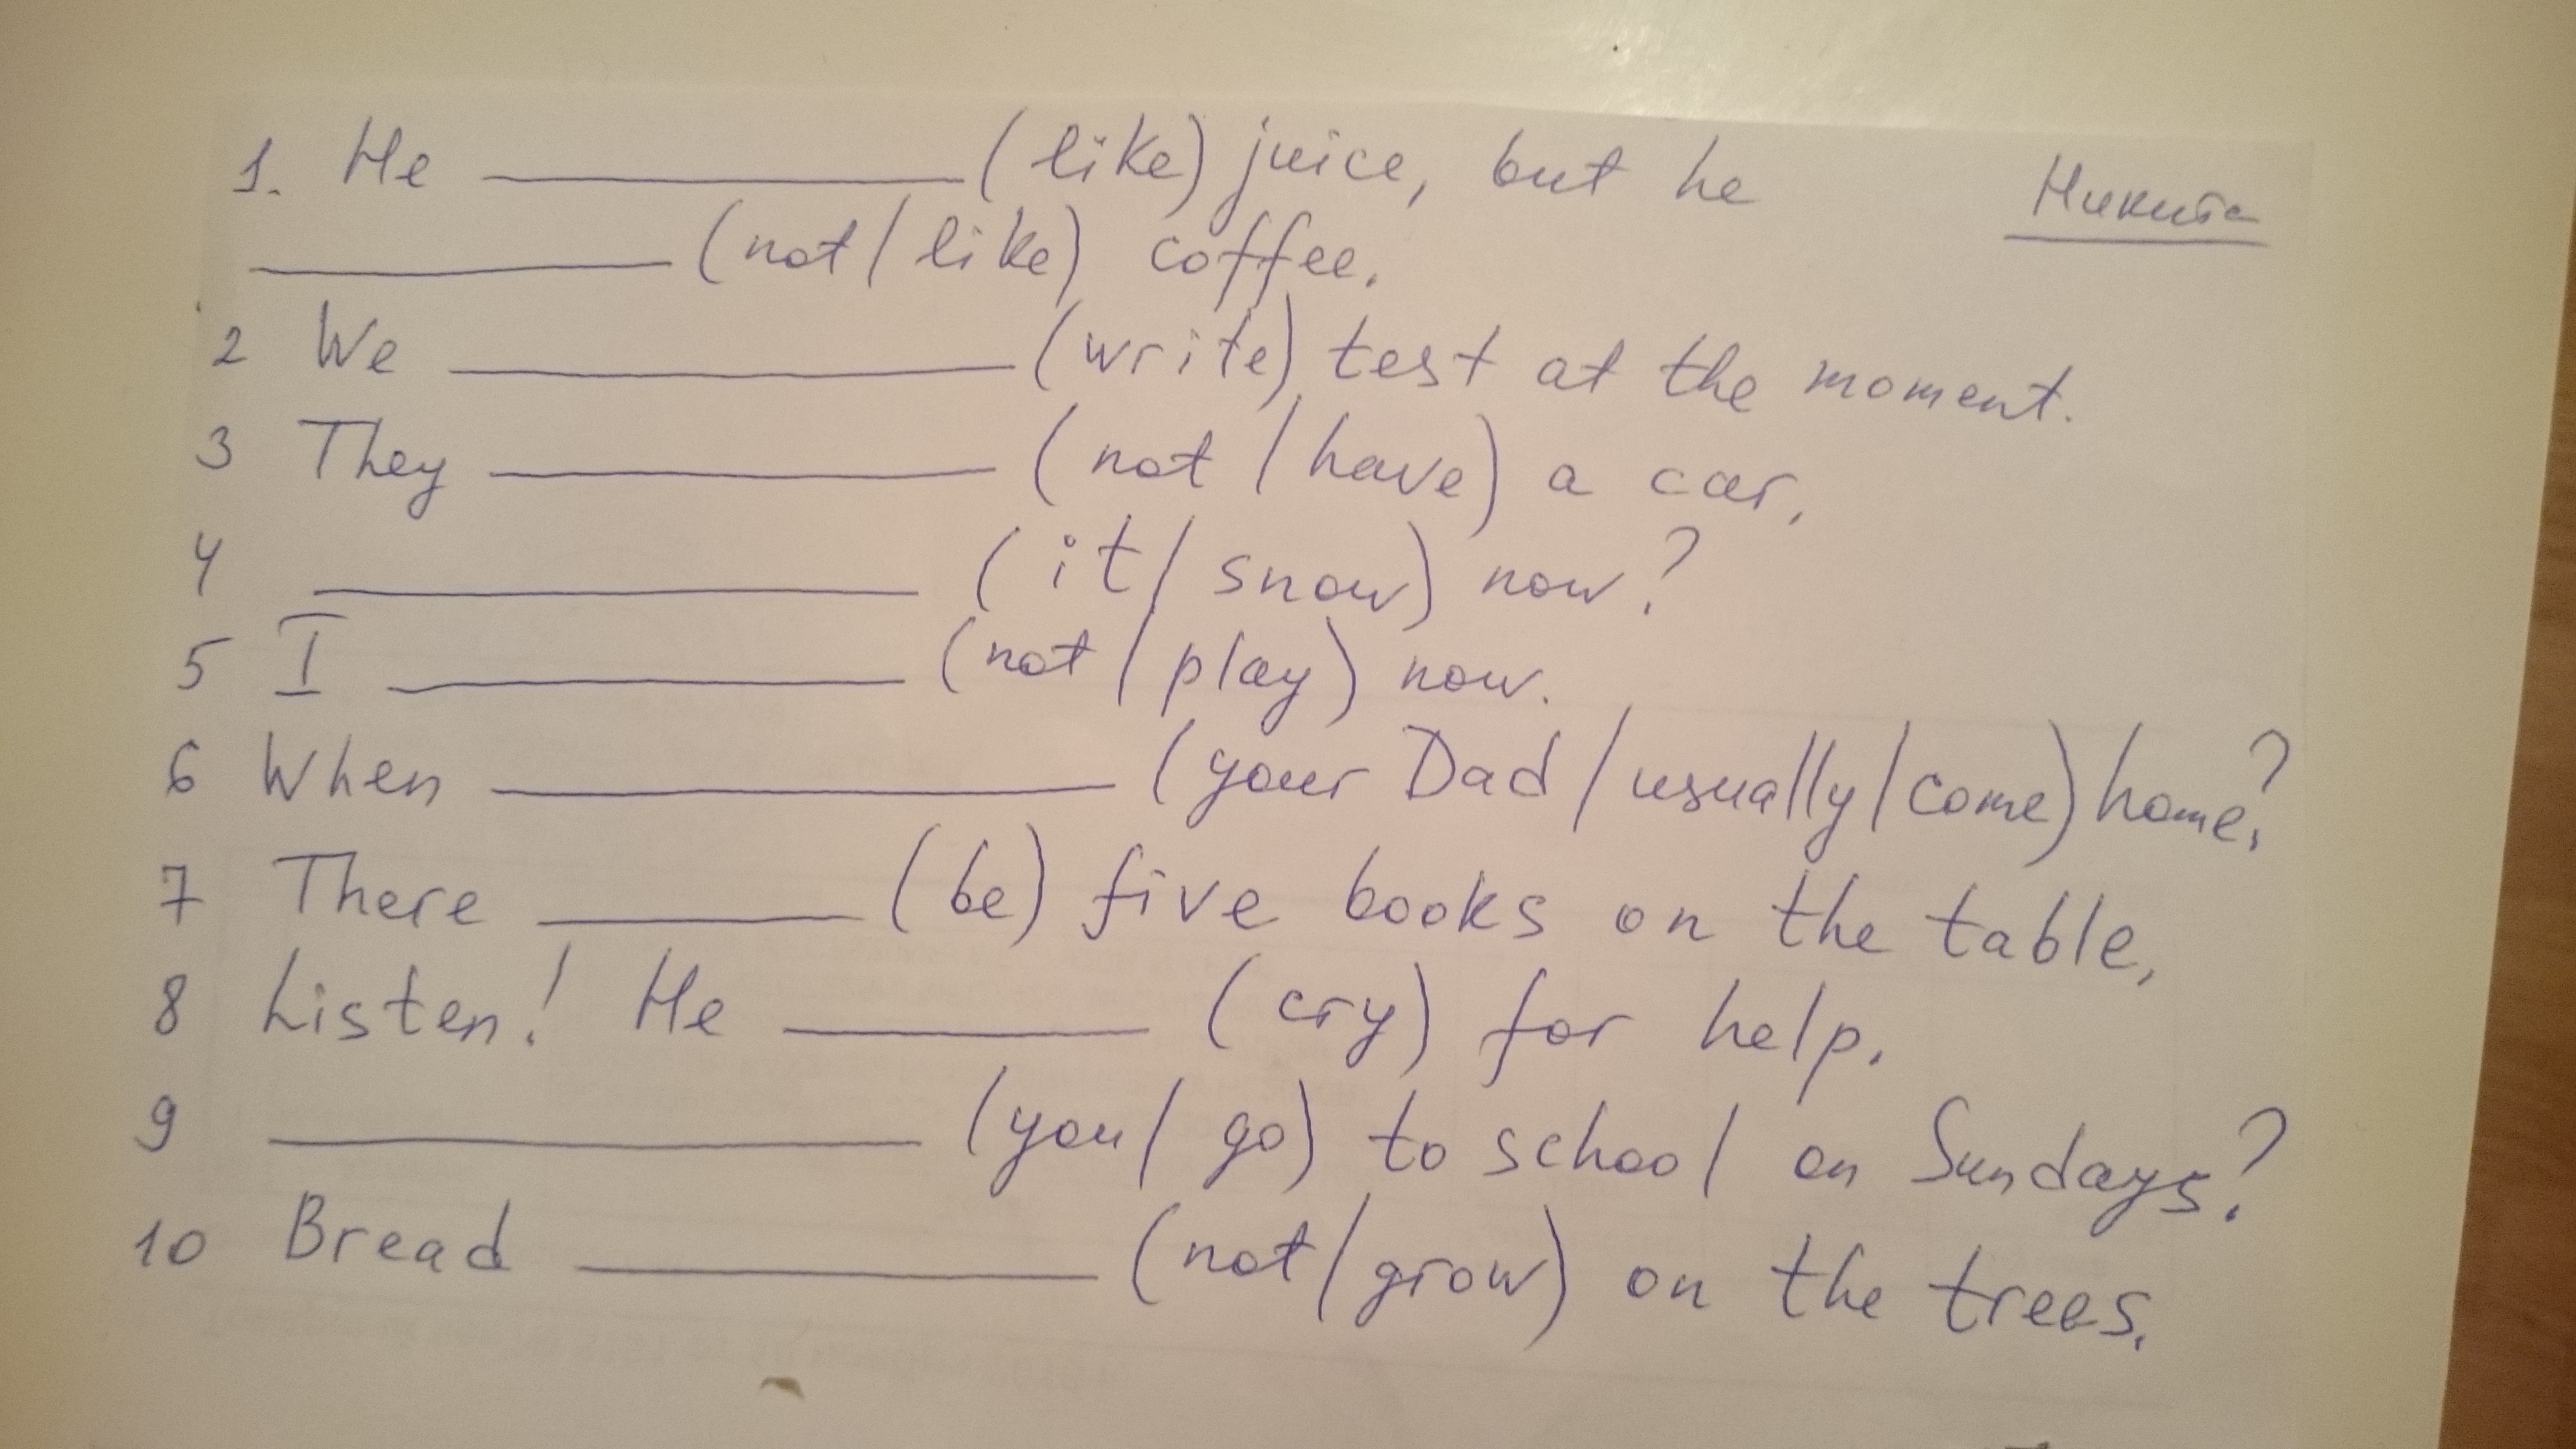 1. He ____________ (like) juice, but he
Никита
____________ (not / like) coffee.
2 We ____________ (write) test at the moment.
3 They ____________ (not / have) a car.
4 ____________ (it / snow) now?
5 I ____________ (not / play) now.
6 When ____________ (your Dad / usually / come) home?
7 There ____________ (be) five books on the table.
8 Listen! He ____________ (cry) for help.
9 ____________ (you / go) to school on Sundays?
10 Bread ____________ (not / grow) on the trees.